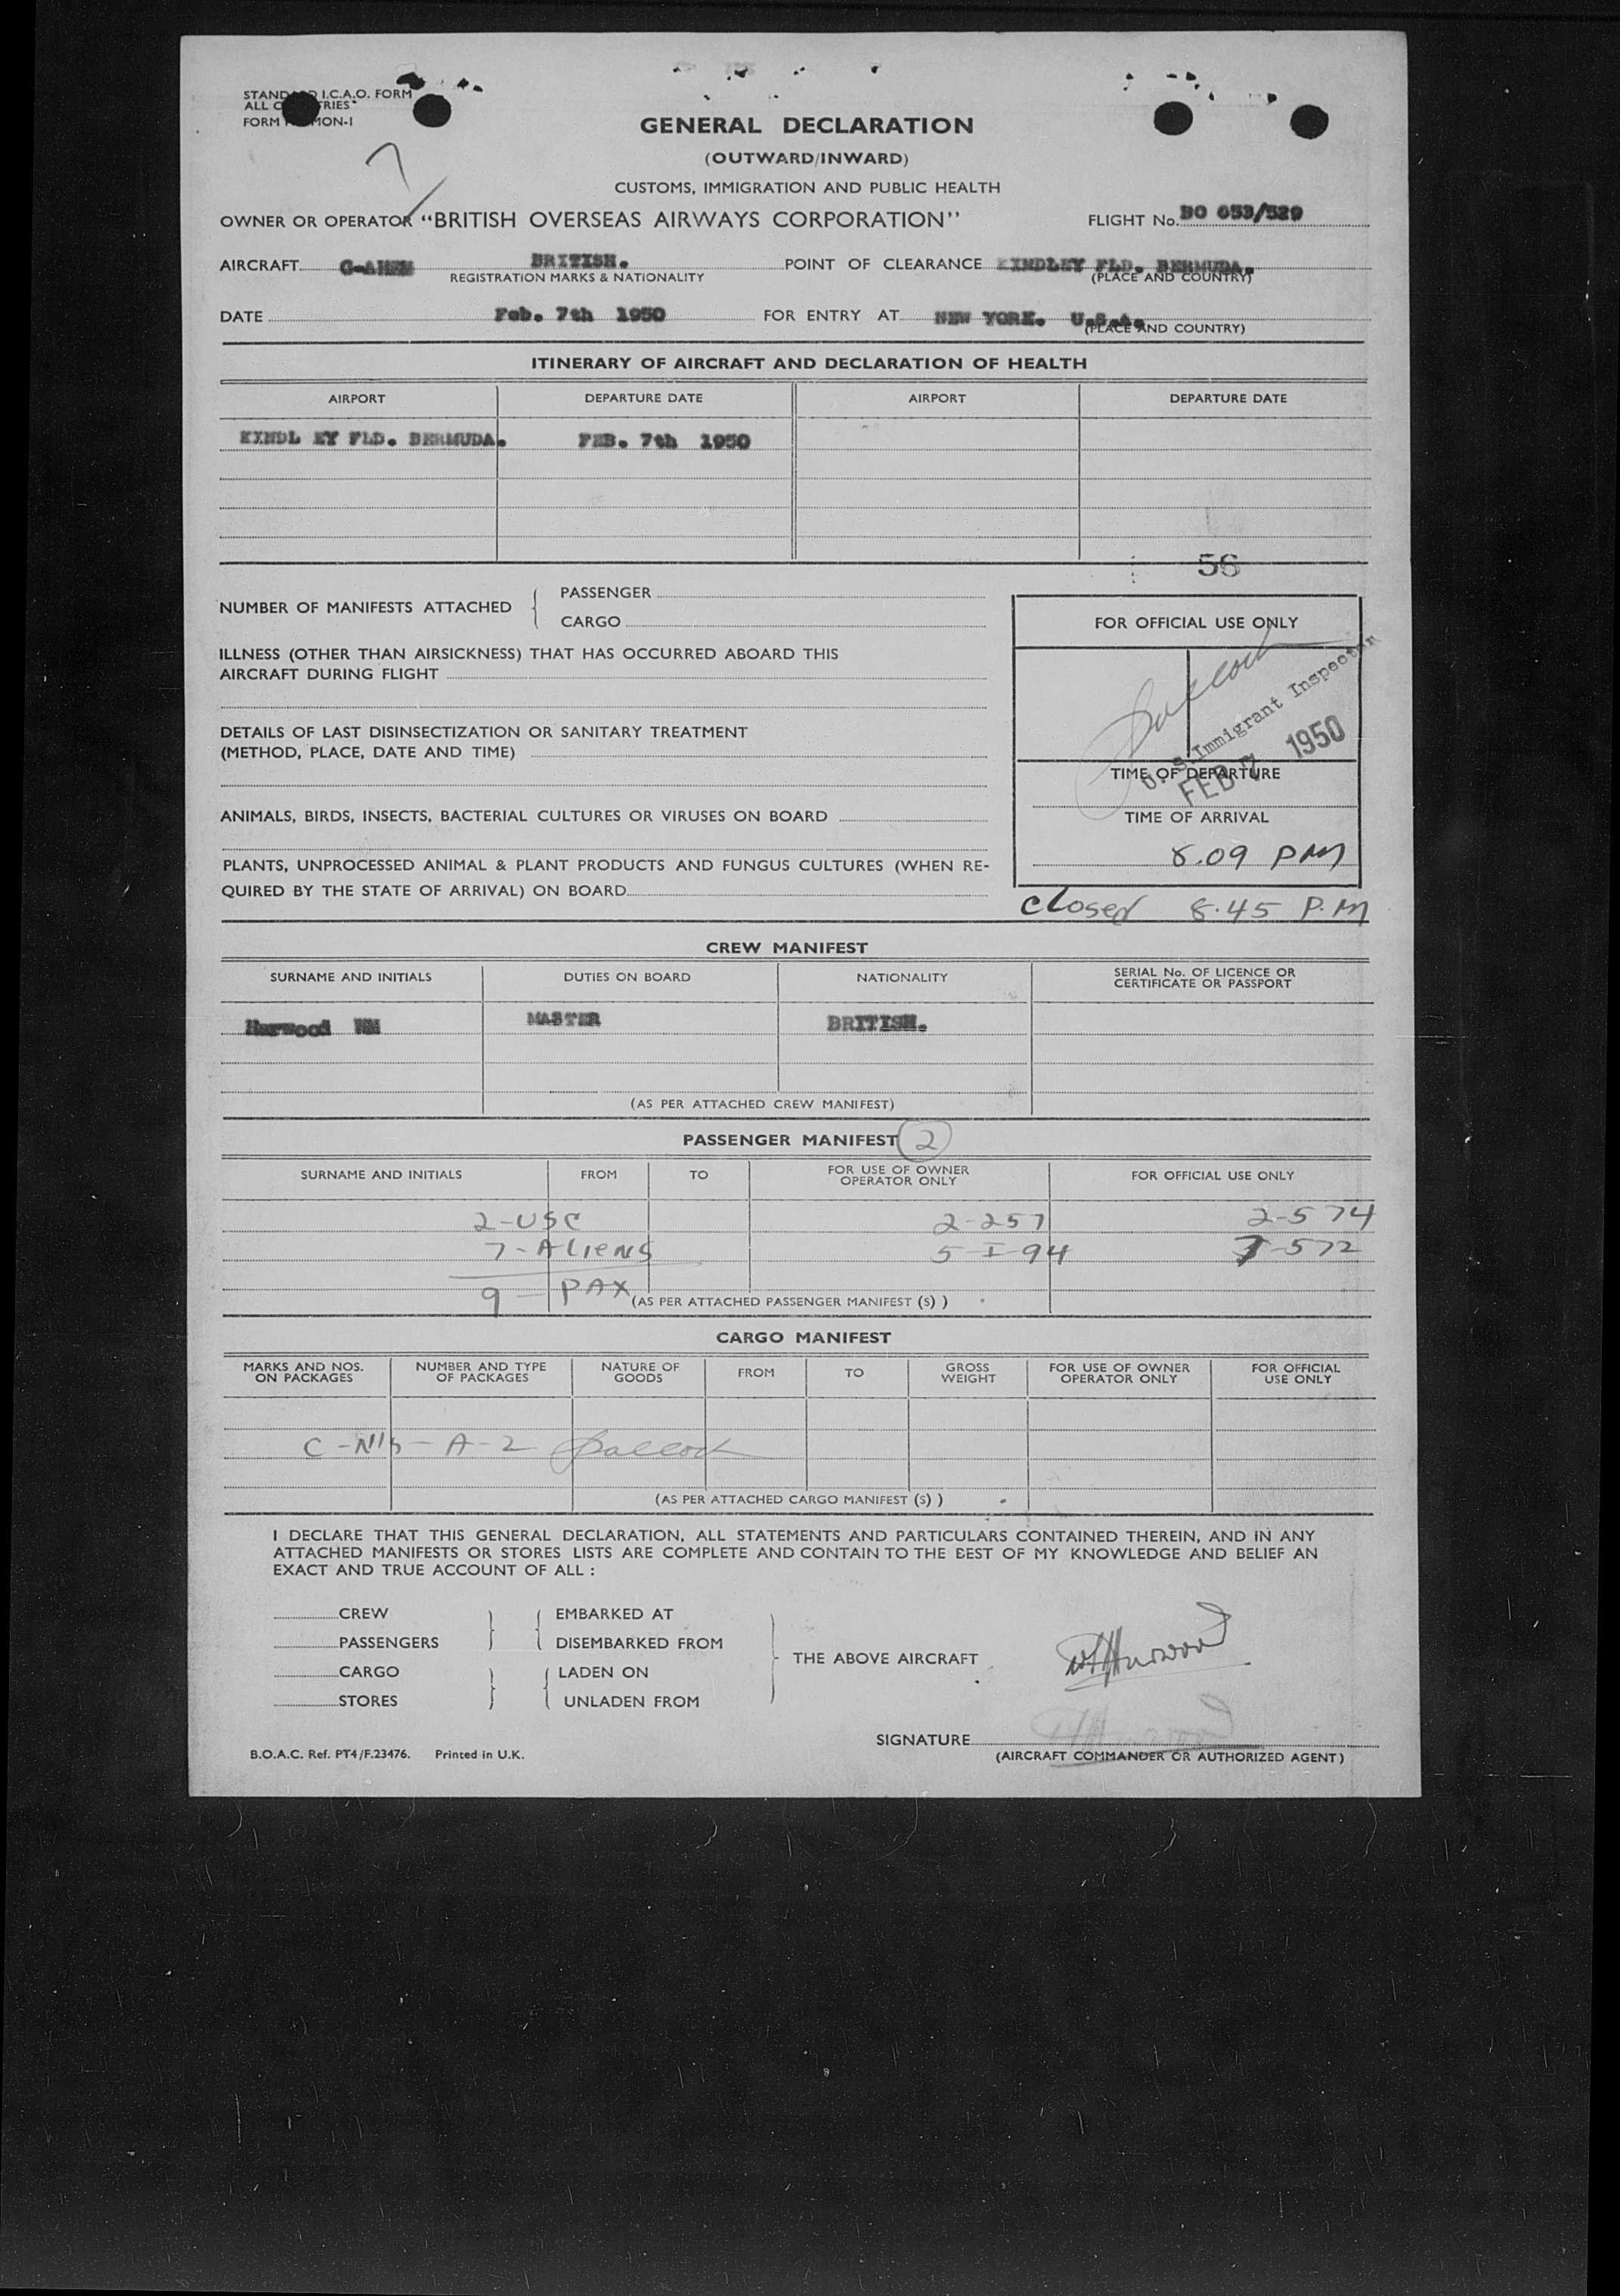 I.C.A.O. FORM
GENERAL DECLARATION
(OUTWARD/INWARD)
CUSTOMS, IMMIGRATION AND PUBLIC HEALTH
7
OWNER OR OPERATOR "BRITISH OVERSEAS AIRWAYS CORPORATION" FLIGHT No. BO 653/529
AIRCRAFT BRITISH. POINT OF CLEARANCE KINDLEY FLD. BERMUDA.
REGISTRATION MARKS & NATIONALITY (PLACE AND COUNTRY)
DATE Feb. 7th 1950 FOR ENTRY AT NEW YORK. U.S.A.
(PLACE AND COUNTRY)
ITINERARY OF AIRCRAFT AND DECLARATION OF HEALTH
AIRPORT DEPARTURE DATE AIRPORT DEPARTURE DATE
KINDL EY FLD. BERMUDA. FEB. 7th 1950
56
NUMBER OF MANIFESTS ATTACHED { PASSENGER
CARGO
FOR OFFICIAL USE ONLY
ILLNESS (OTHER THAN AIRSICKNESS) THAT HAS OCCURRED ABOARD THIS
AIRCRAFT DURING FLIGHT
DETAILS OF LAST DISINSECTIZATION OR SANITARY TREATMENT
(METHOD, PLACE, DATE AND TIME)
U. S. Immigrant Inspector
FEB 7 1950
TIME OF DEPARTURE
ANIMALS, BIRDS, INSECTS, BACTERIAL CULTURES OR VIRUSES ON BOARD
TIME OF ARRIVAL
8.09 PM
PLANTS, UNPROCESSED ANIMAL & PLANT PRODUCTS AND FUNGUS CULTURES (WHEN RE-
QUIRED BY THE STATE OF ARRIVAL) ON BOARD
closed 8.45 P.M
CREW MANIFEST
SURNAME AND INITIALS DUTIES ON BOARD NATIONALITY SERIAL No. OF LICENCE OR
CERTIFICATE OR PASSPORT
Harwood WM MASTER BRITISH.
(AS PER ATTACHED CREW MANIFEST)
PASSENGER MANIFEST 2
SURNAME AND INITIALS FROM TO FOR USE OF OWNER
OPERATOR ONLY FOR OFFICIAL USE ONLY
2-USC 2-257 2-574
7-ALIENS 5-I-94 -572
9 - PAX
(AS PER ATTACHED PASSENGER MANIFEST (S) )
CARGO MANIFEST
MARKS AND NOS.
ON PACKAGES NUMBER AND TYPE
OF PACKAGES NATURE OF
GOODS FROM TO GROSS
WEIGHT FOR USE OF OWNER
OPERATOR ONLY FOR OFFICIAL
USE ONLY
A-2
(AS PER ATTACHED CARGO MANIFEST (S) )
I DECLARE THAT THIS GENERAL DECLARATION, ALL STATEMENTS AND PARTICULARS CONTAINED THEREIN, AND IN ANY
ATTACHED MANIFESTS OR STORES LISTS ARE COMPLETE AND CONTAIN TO THE BEST OF MY KNOWLEDGE AND BELIEF AN
EXACT AND TRUE ACCOUNT OF ALL :
CREW EMBARKED AT
PASSENGERS DISEMBARKED FROM
THE ABOVE AIRCRAFT
CARGO LADEN ON
STORES UNLADEN FROM
SIGNATURE
(AIRCRAFT COMMANDER OR AUTHORIZED AGENT)
B.O.A.C. Ref. PT4/F.23476. Printed in U.K.